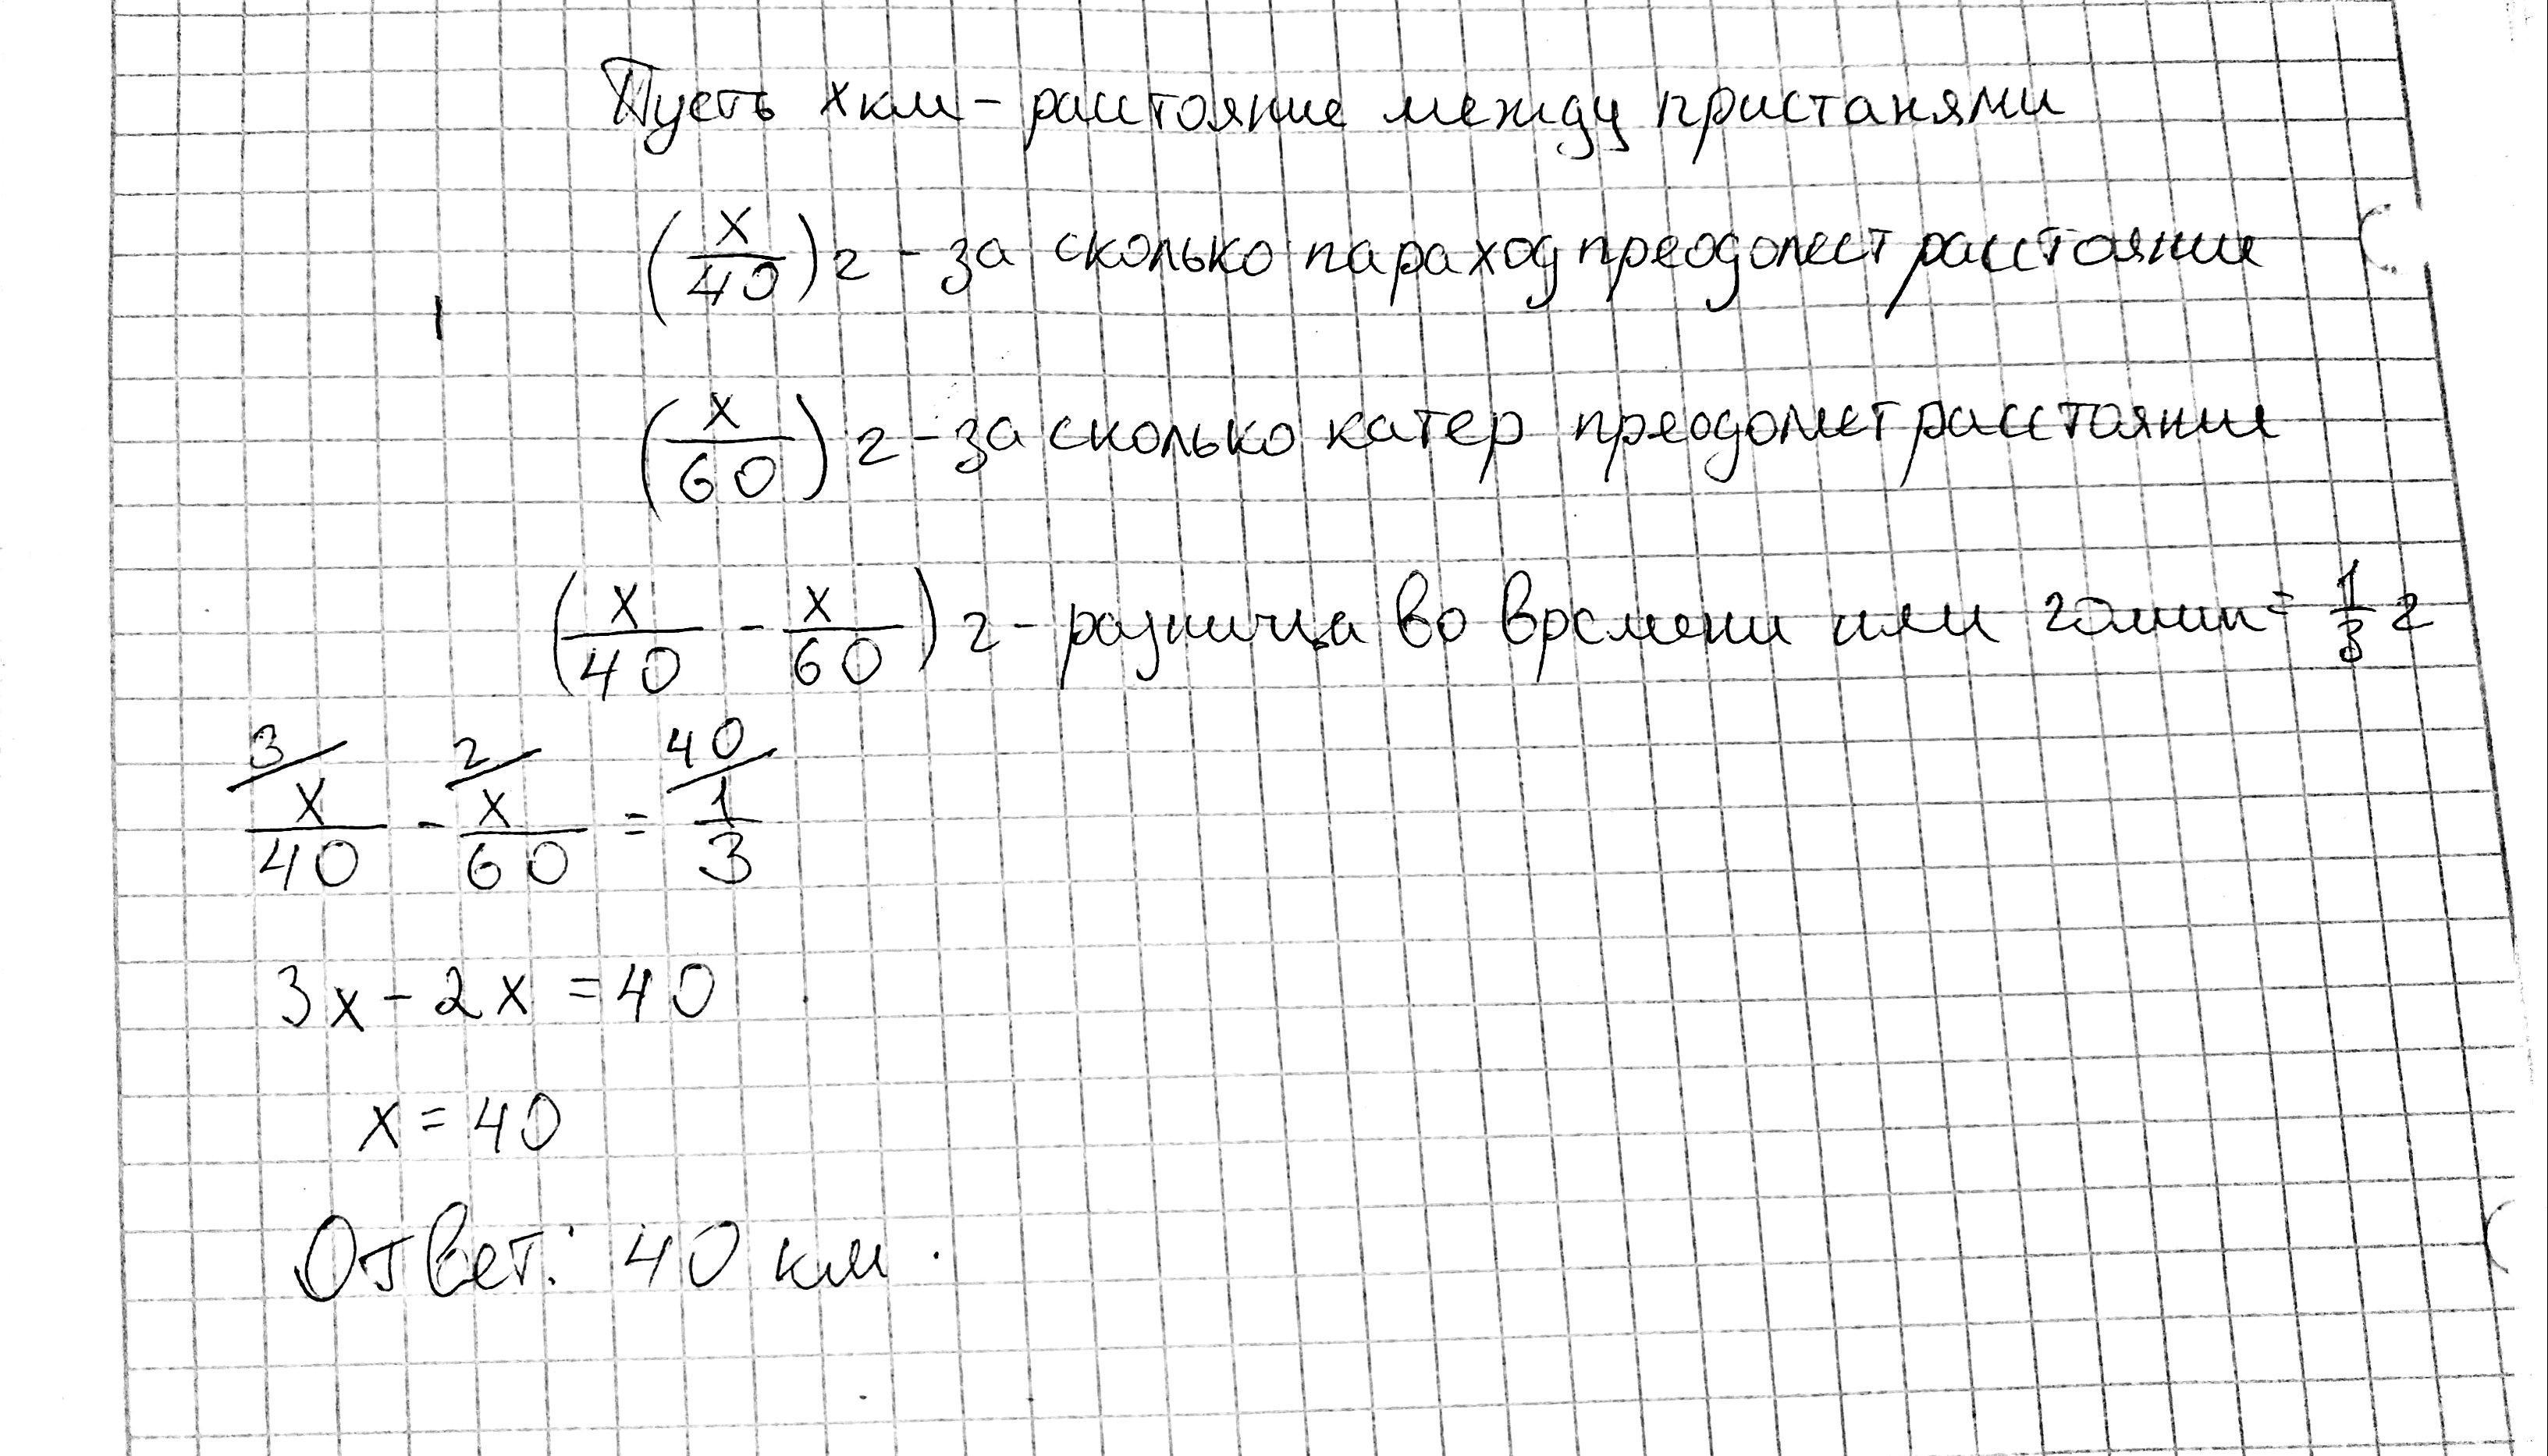 Пусть x км - расстояние между пристанями
(x/40) ч - за сколько параход преодолеет расстояние
(x/60) ч - за сколько катер преодолеет расстояние
(x/40 - x/60) ч - разница во времени или 20 мин = 1/3 ч
3/ 2/ 40/
x/40 - x/60 = 1/3
3x - 2x = 40
x = 40
Ответ: 40 км.